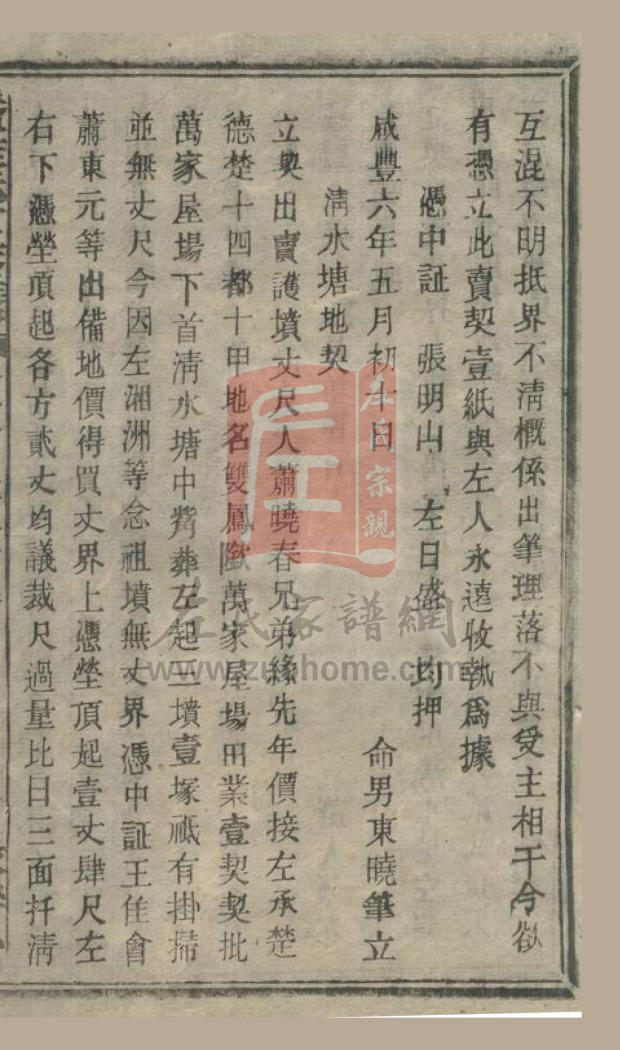 互混不明抵界不清概係出筆理落不與受主相干今欲
有憑立此賣契壹紙與左人永遠收執爲據
憑中証 張明山 左日盛 均押
咸豐六年五月初十日 命男東曉筆立
清水塘地契
立契出賣護墳丈尺人蕭曉春兄弟緣先年價接左承楚
德楚十四都十甲地名雙鳳 萬家屋場田業壹契契批
萬家屋場下首清水塘中 葬左起三墳壹塚祗有掛掃
並無丈尺今因左湘洲等念祖墳無丈界憑中証王佳會
蕭東元等出備地價得買丈界上憑塋頂起壹丈肆尺左
右下憑塋頂起各方貳丈均議裁尺過量比日三面扦清
本日宗親
左氏家譜網
www.zuohome.com